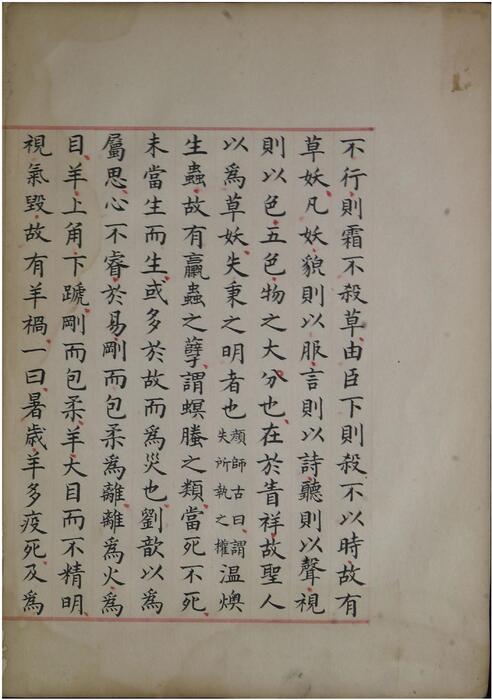 不行則霜不殺草由臣下則殺不以時故有
草妖凡妖貌則以服言則以詩聽則以聲視
則以色五色物之大分也在於眚祥故聖人
以為草妖失秉之明者也顏師古曰謂失所執之權溫燠
生蟲故有蠃蟲之孽謂螟螣之類當死不死
未當生而生或多於故而為災也劉歆以為
屬思心不睿於易剛而包柔為離離為火為
目羊上角下蹏剛而包柔羊大目而不精明
視氣毀故有羊禍一曰暑歲羊多疫死及為